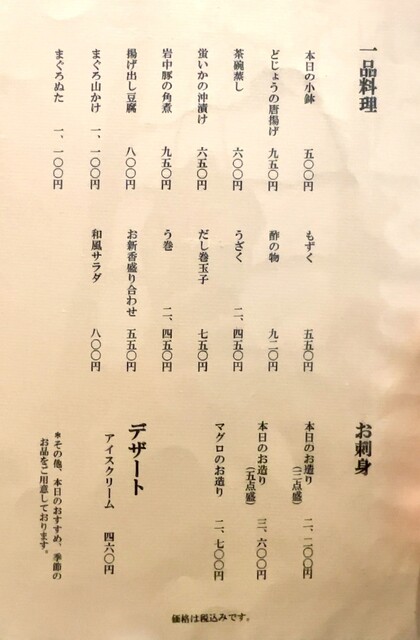 一品料理
本日の小鉢 五〇〇円
どじょうの唐揚げ 九五〇円
茶碗蒸し 六〇〇円
蛍いかの沖漬け 六五〇円
岩中豚の角煮 九五〇円
揚げ出し豆腐 八〇〇円
まぐろ山かけ 一、一〇〇円
まぐろぬた 一、一〇〇円
もずく 五五〇円
酢の物 九二〇円
うざく 二、四五〇円
だし巻玉子 七五〇円
う巻 二、四五〇円
お新香盛り合わせ 五五〇円
和風サラダ 八〇〇円
お刺身
本日のお造り(三点盛) 二、二〇〇円
本日のお造り(五点盛) 三、六〇〇円
マグロのお造り 二、七〇〇円
デザート
アイスクリーム 四六〇円
*その他、本日のおすすめ、季節の
お品をご用意しております。
価格は税込みです。